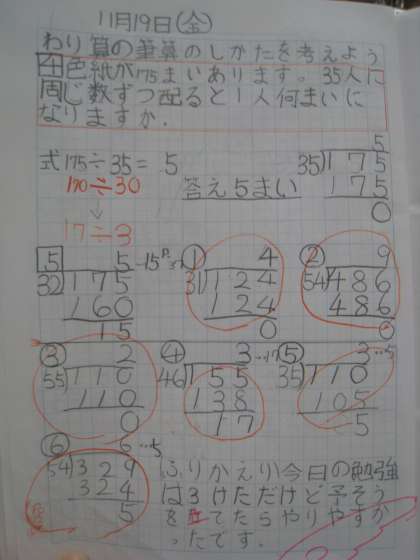 11月19日(金)
わり算の筆算のしかたを考えよう
4色紙が175まいあります。35人に
同じ数ずつ配ると1人何まいに
なりますか.
式175÷35= 5
170÷30
↓
17÷3
答え5まい
5
35)175
175
0
5
5
32)175
160
15
① 4
31)124
124
0
② 9
54)486
486
0
③ 2
55)110
110
0
④ 3…17
46)155
138
17
⑤ 3…5
35)110
105
5
⑥ 6…5
54)329
324
5
ふりかえり今日の勉強
は3けただけど予そう
を立てたらやりやすか
ったです.